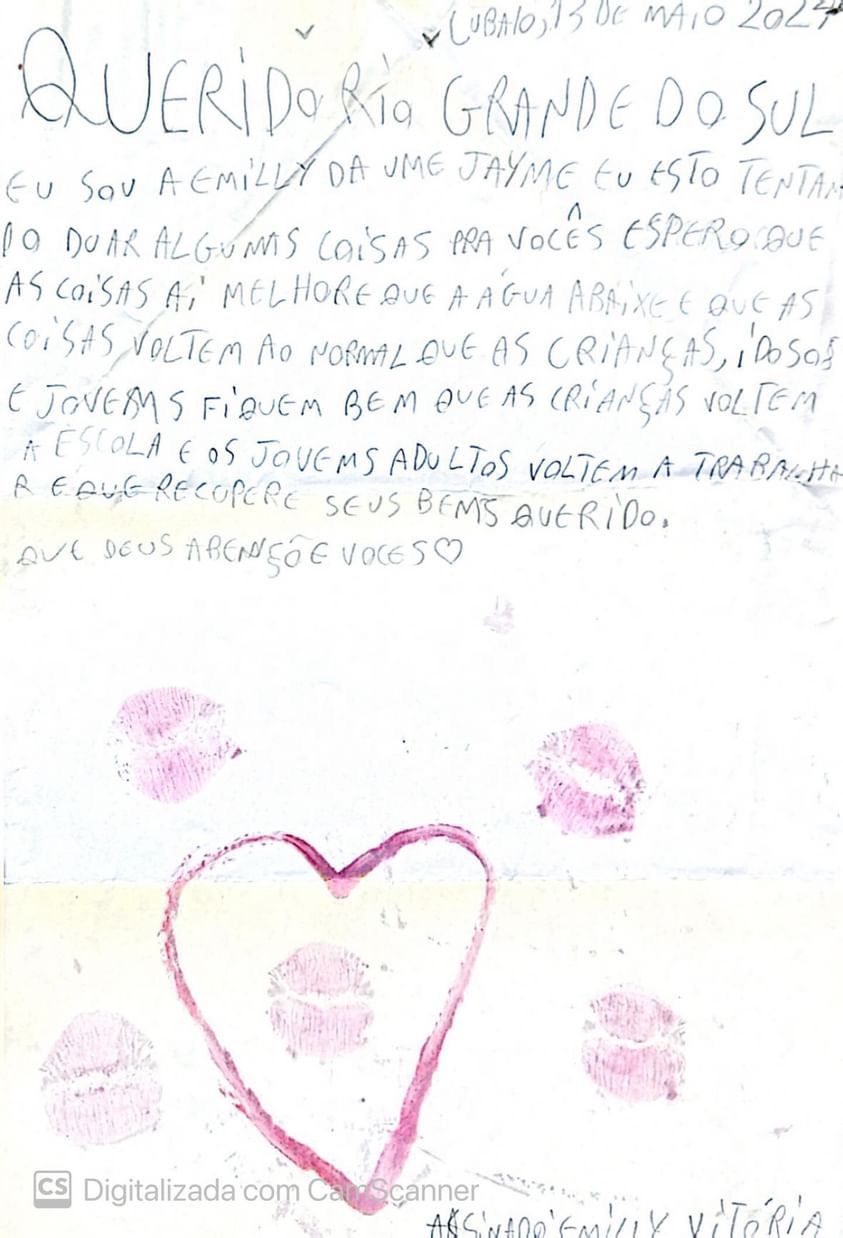 CUBATÃO, 13 DE MAIO 2024
QUERIDO Rio GRANDE DO SUL
EU SOU A EMILLY DA UME JAYME EU ESTO TENTAN
DO DUAR ALGUMAS COISAS PRA VOCÊS ESPERO QUE
AS COISAS AÍ MELHORE QUE A ÁGUA ABAIXE E QUE AS
COISAS VOLTEM AO NORMAL QUE AS CRIANÇAS, IDOSOS
E JOVEMS FIQUEM BEM QUE AS CRIANÇAS VOLTEM
A ESCOLA E OS JOVEMS ADULTOS VOLTEM A TRABALHA
R E QUE RECUPERE SEUS BEMS QUERIDO.
QUE DEUS ABENÇÕE VOCES♡
CS Digitalizada com CamScanner
ASSINADO EMILLY VITÓRIA